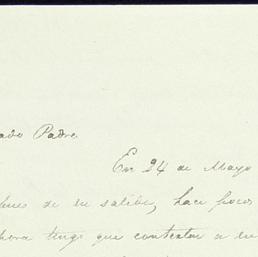 ado Padre
En 24 de Mayo
de su salida, hace poco
hora tengo que contestar a